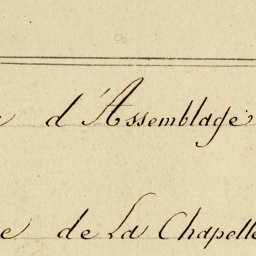 d'Assemblage
e de La Chapelle